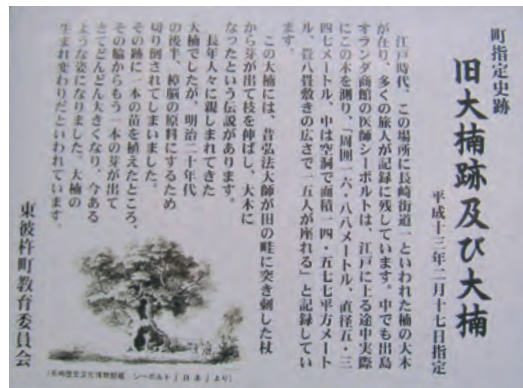 町指定史跡
旧大楠跡及び大楠
平成十三年二月十七日指定
江戸時代、この場所に長崎街道一といわれた楠の大木
が在り、多くの旅人が記録に残しています。中でも出島
オランダ商館の医師シーボルトは、江戸に上る途中実際
にこの木を測り、「周囲一六・八八メートル、直径五・三
四七メートル、中は空洞で面積一四・五七七平方メート
ル、畳八畳敷きの広さで一五人が座れる」と記録してい
ます。
この大楠には、昔弘法大師が田の畦に突き刺した杖
から芽が出て枝を伸ばし、大木に
なったという伝説があります。
長年人々に親しまれてきた
大楠でしたが、明治二十年代
の後半、樟脳の原料にするため
切り倒されてしまいました。
その跡に一本の苗を植えたところ、
その脇からもう一本の芽が出て
きてどんどん大きくなり、今ある
ような姿になりました。大楠の
生まれ変わりだといわれています。
東彼杵町教育委員会
(長崎歴史文化博物館蔵 シーボルト「日本」より)